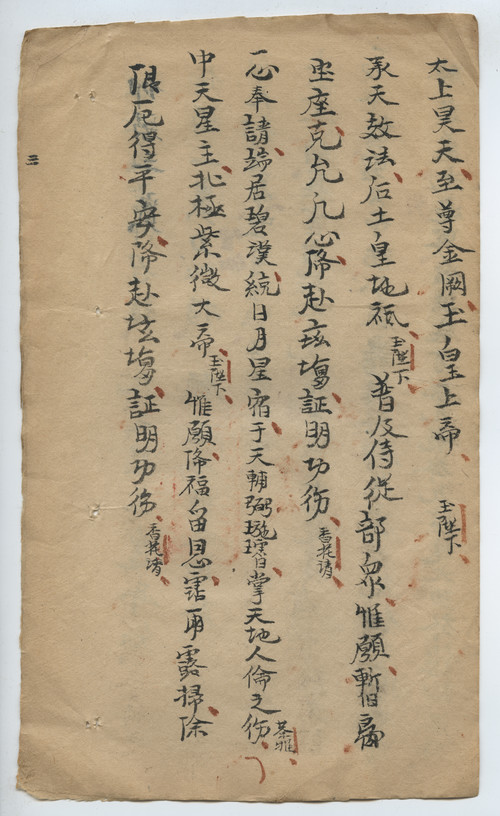 太上昊天至尊金闕玉皇上帝 玉陛下
承天效法后土皇地祗 玉陛下 普及侍從部眾惟願暫留
座克允凡心降赴玆塲証明功德 香花請
一心奉請端居碧漢統日月星宿于天輔弼璣璿掌天地人倫之
中天星主北極紫微大帝 玉陛下 惟願降福留恩霑雨露掃除
限厄得平安降赴玆塲証明功德 香花請
三